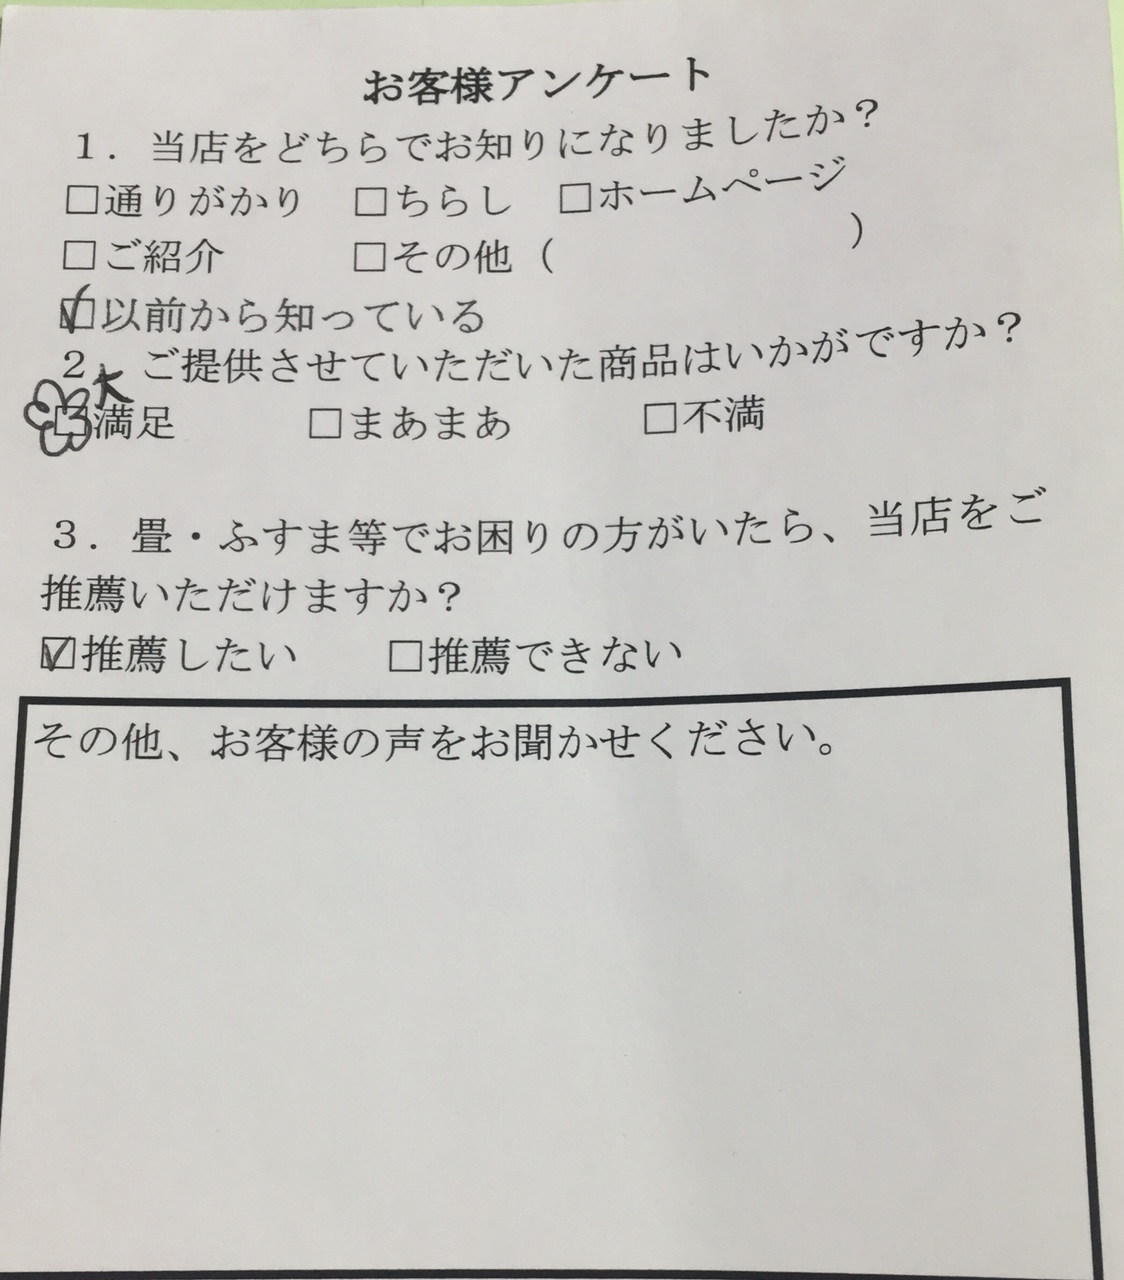 お客様アンケート
１．当店をどちらでお知りになりましたか？
□通りがかり　□ちらし　□ホームページ
□ご紹介　□その他（　　　　　　　）
☑以前から知っている
２．ご提供させていただいた商品はいかがですか？
大
☑満足　□まあまあ　□不満
３．畳・ふすま等でお困りの方がいたら、当店をご
推薦いただけますか？
☑推薦したい　□推薦できない
その他、お客様の声をお聞かせください。